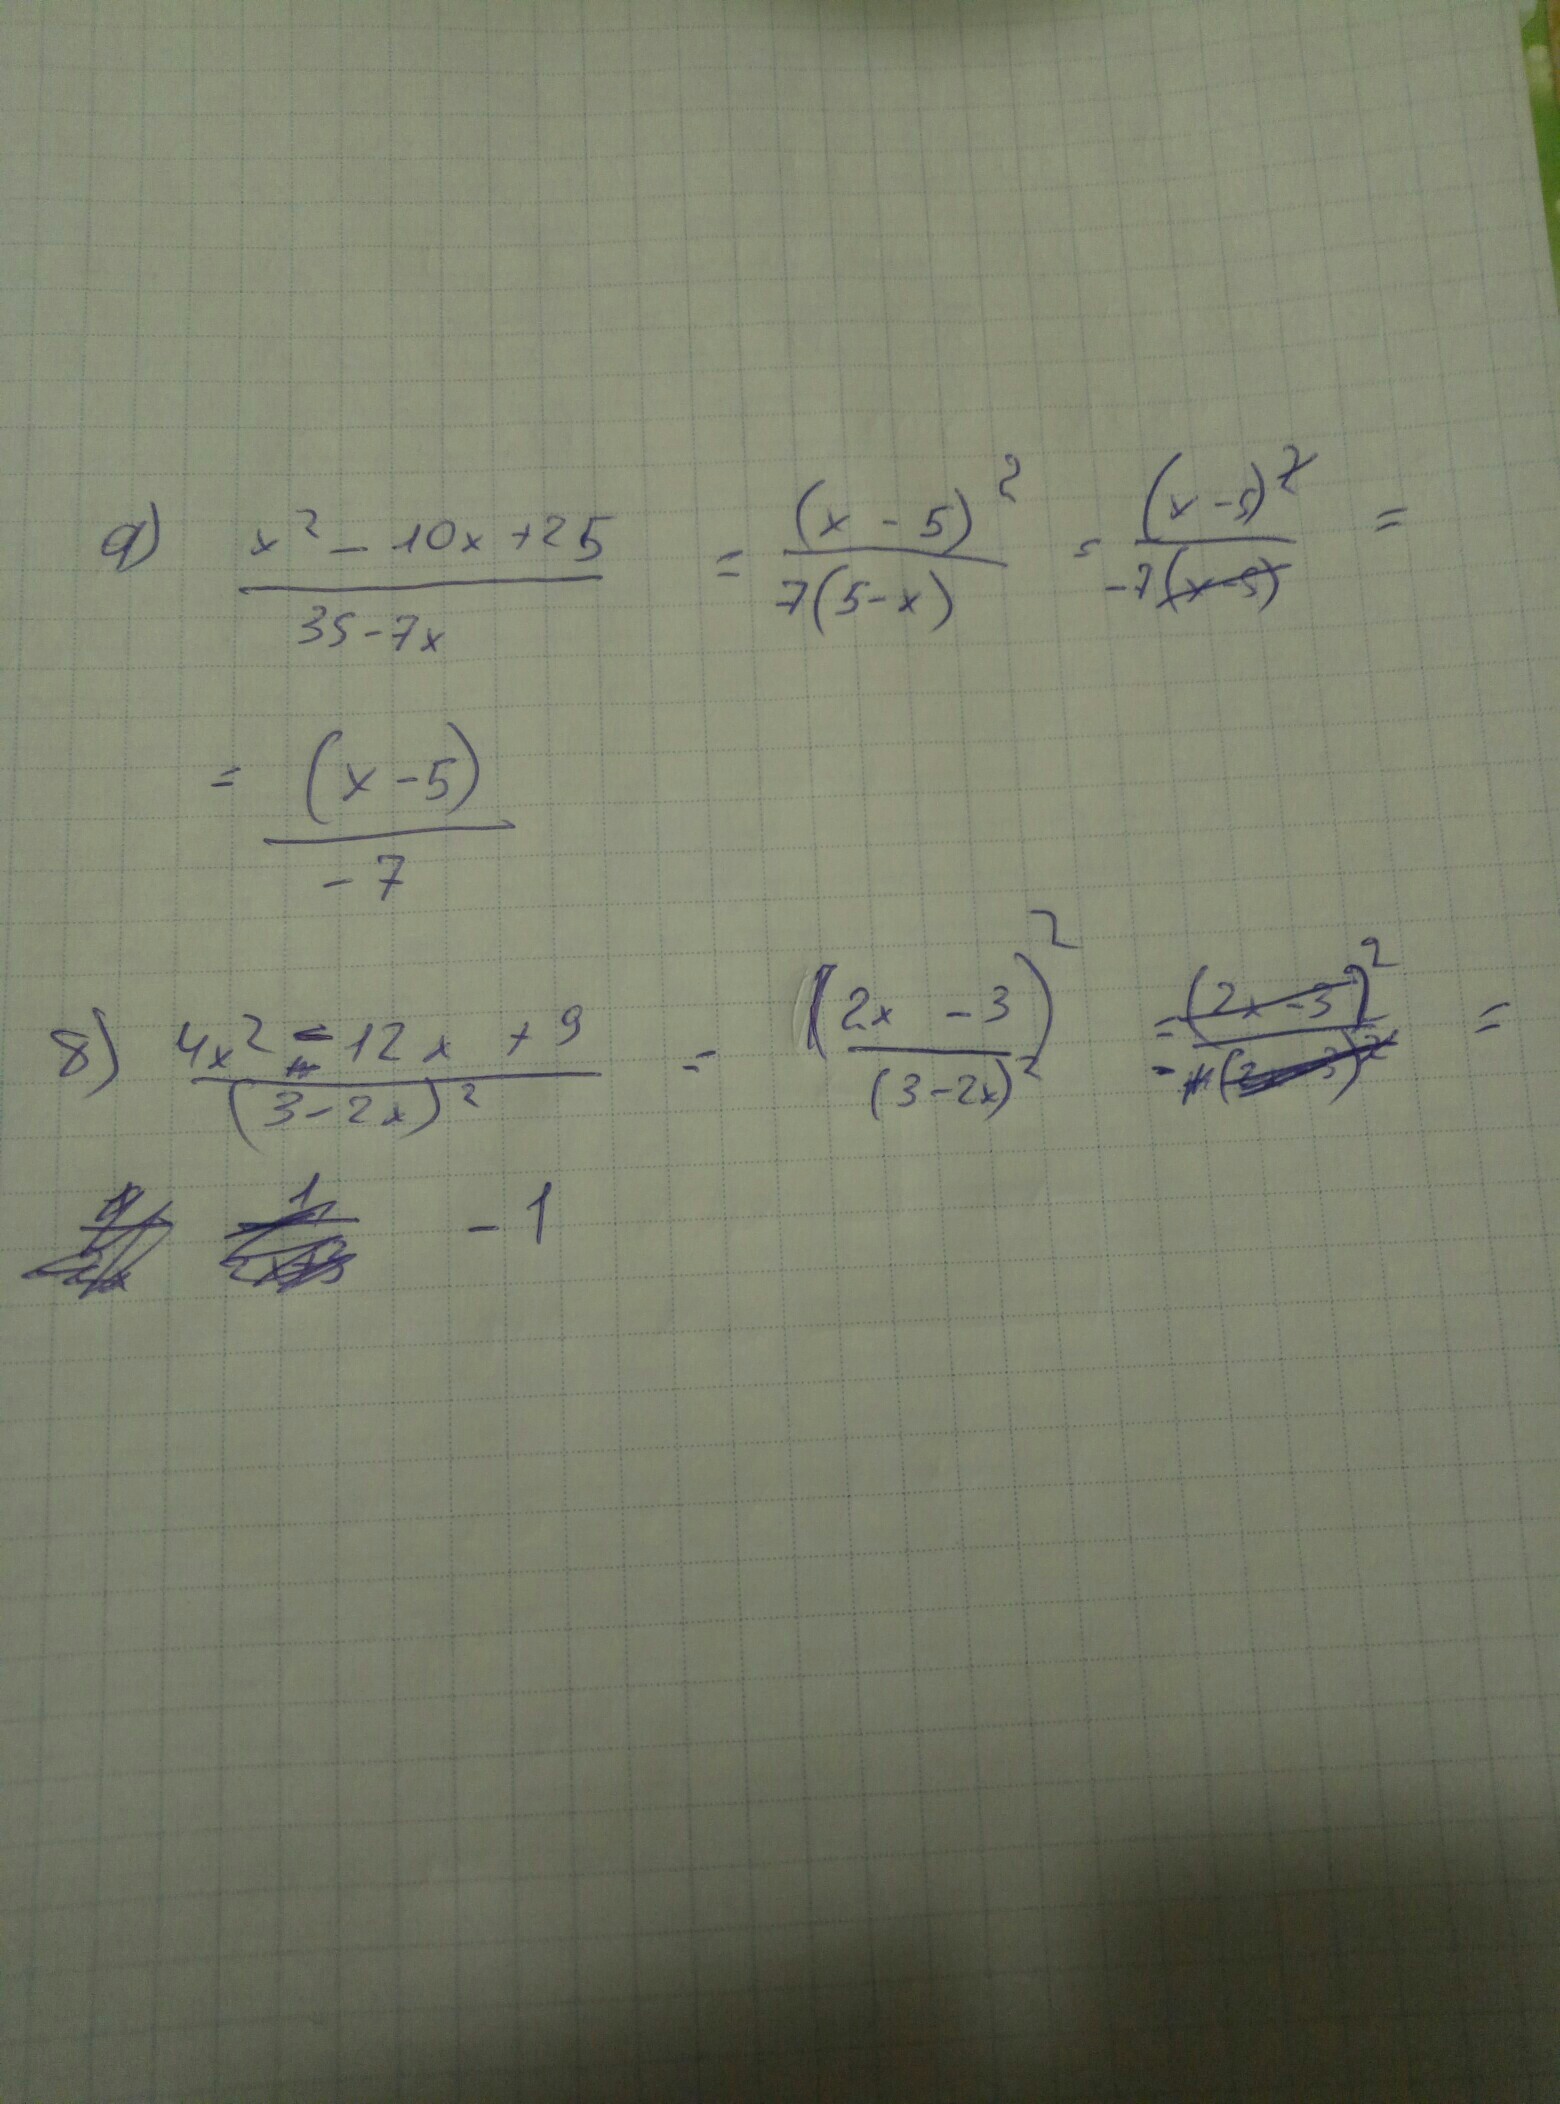 а) (x² - 10x + 25)/(35 - 7x) = (x - 5)²/(7(5 - x)) = (x - 5)²/(-7(x - 5)) =
= (x - 5)/(-7)
в) (4x² - 12x + 9)/((3 - 2x)²) = (2x - 3)²/((3 - 2x)²) = (2x - 3)²/ =
- 1